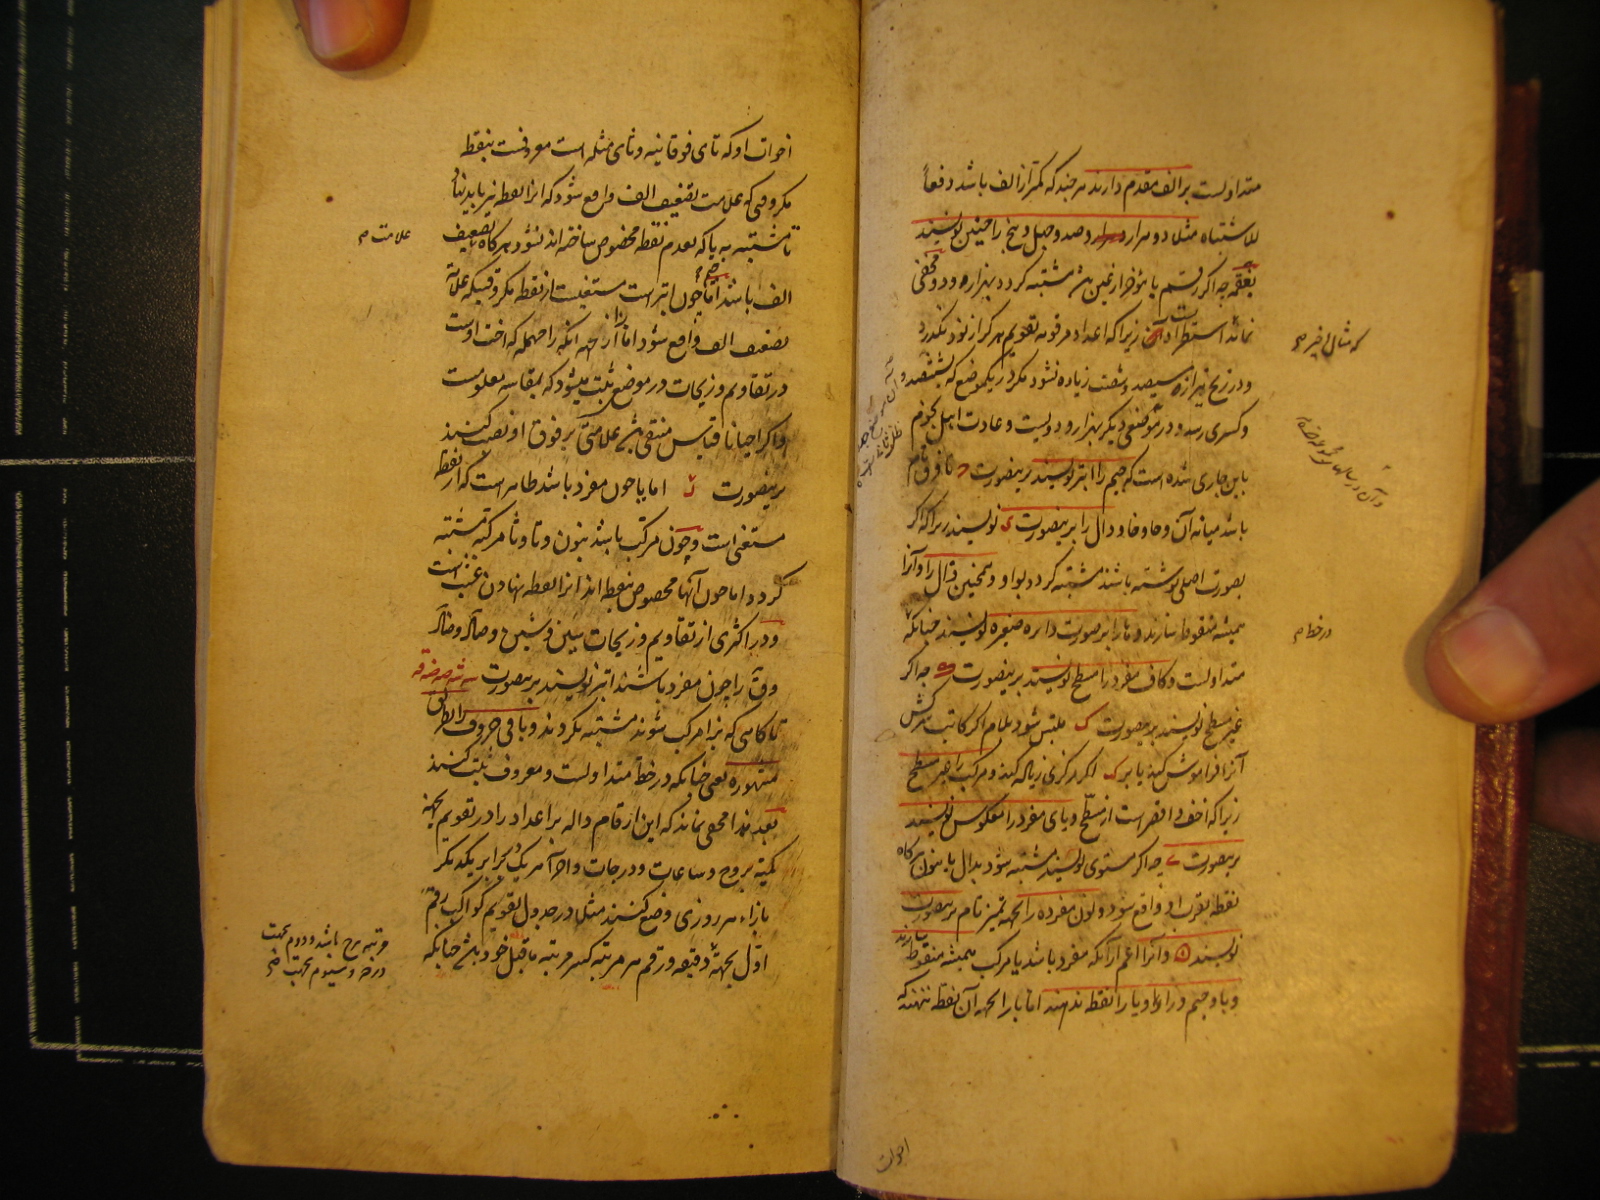 متداولست بر الف مقدم دارند هر چند که کمتر از الف باشد دفعاً
للاشتباه مثلا دو هزار و صد و چهل و پنج را چنین نویسند
بغقمه چه اگر رقم با مؤخر از غین مشتبه گردد بهزار و دو و مخفی
نماند استطرادا زیرا که اعداد مرقومه تقویم هرگز از نود نگذرد
و در زیج نیز از سیصد و شصت زیاده نشود مگر در یکموضع که بششصد
و کسری رسد و در موضعی دیگر بهزار و دویست و عادت اهل نجوم
باین جاری شده است که جیم را ابتر نویسند برینصورت تا فرق تام
باشد میانه آن و حا و خا و دال را برینصورت نویسند زیرا که اگر
بصورت اصلی نوشته باشند مشتبه گردد بواو و همچنین ذال را و آنرا
همیشه منقوط سازند و ها را بر صورت دایره صغیره نویسند چنانکه
متداولست و کاف مفرد را مسطح نویسند برینصورت چه اگر
غیر مسطح نویسند برینصورت ملتبس شود بلام اگر کاتب مرکزش
آنرا فراموش کند یا بر ک اگر مرکزی زیاده کند و مرکب را غیر مسطح
زیرا که اخف و اقصر است از مسطح و یای مفرد را معکوس نویسند
برینصورت چه اگر مستوی نویسند مشتبه شود بدال یا بنون هر گاه
نقطه بقرب او واقع شود و نون مفرده را بجهة تمیز تام برینصورت
نویسند و آنرا اعم از آنکه مفرد باشد یا مرکب همیشه منقوط سازند
و با و جیم و زا و یا را نقطه ندهند اما با را بجهة آن نقطه ننهند که
که مثال اخیر
در خط م
اخوات
اخوات او که تای فوقانیه و ثای مثلثه است معروفست بنقط
مگر وقتی که علامت تضعیف الف واقع شود که آنرا نقطه نیز باید نهاد
تا مشتبه به یا که بعدم نقطه مخصوص ساخته‌اند نشود و هر گاه تضعیف
علامت م
الف باشد اما چون ابتر است مستغنیست از نقطه مگر وقتیکه علامة
تضعیف الف واقع شود اما زا از جهة آنکه را مهمله که اخت اوست
در تقاویم و زیجات در موضع ثبت میشود که بمقایسه معلومست
و اگر احیانا قیاس منتفی باشد علامتی بر فوق او نصب کنند
برینصورت اما یا چون مفرد باشد ظاهر است که از نقطه
مستغنی است و چون مرکب باشد بنون و تا و ثا مرکبه مشتبه
گردد اما چون آنها مخصوص بنقطه‌اند آنرا نقطه نهادن عبث است
و در اکثری از تقاویم و زیجات سین و شین و صاد و ضاد
و ق را چون مفرد باشند ابتر نویسند برینصورت سـ شـ صـ ضـ قـ
تا گاهی که نیز مرکب شوند مشتبه نگردند و باقی حروف را بطریق
مشهوره یعنی چنانکه در خط متداولست و معروف ثبت کنند
بعد هذا مخفی نماند که این ارقام داله بر اعداد را در تقویم بجهة
کمیة بروج و ساعات و درجات و اجزا هر یک برابر یکدیگر
بازاء هر روزی وضع کنند مثلا در جدول تقویم کواکب رقم
اول بجهة دقیقه و رقم هر مرتبه کسر مرتبه ماقبل خود باشد چنانکه
مرتبه برج باشد و دوم بجهت
درجه و سیوم بجهت